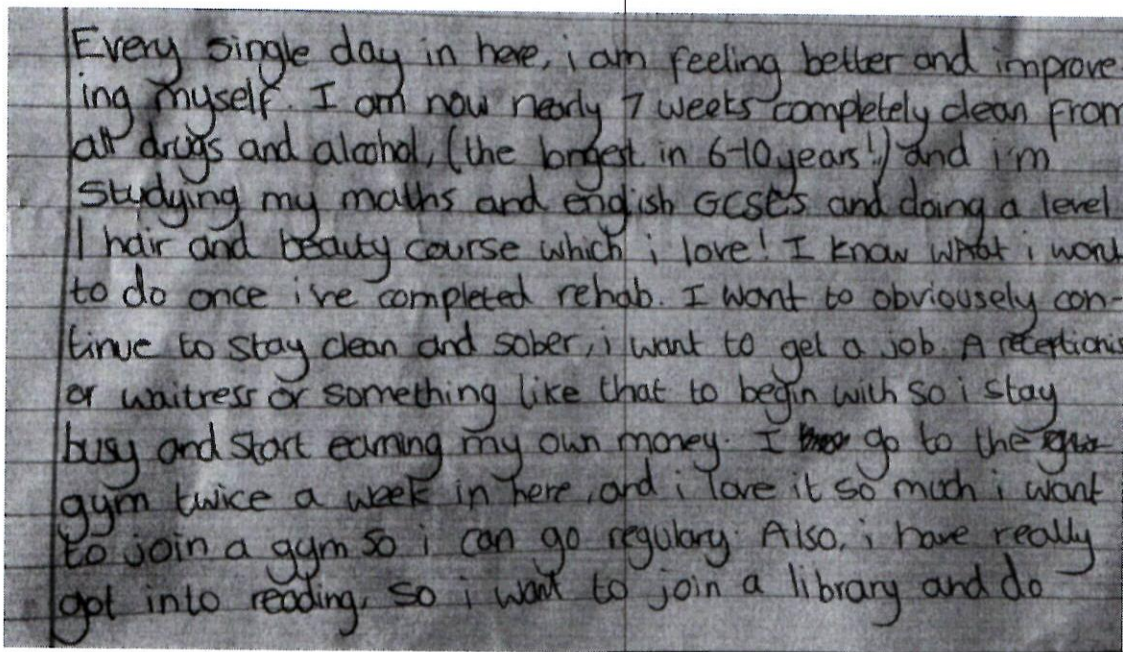 Every single day in here, i am feeling better and improve
ing myself. I am now nearly 7 weeks completely clean from
all drugs and alcohol, (the longest in 6-10 years!) and i'm
studying my maths and english GCSEs and doing a level
1 hair and beauty course which i love! I know what i want
to do once i've completed rehab. I want to obviousely con-
tinue to stay clean and sober, i want to get a job. A receptionis
or waitress or something like that to begin with so i stay
busy and start earning my own money. I go to the
gym twice a week in here, and i love it so much i want
to join a gym so i can go regulary. Also, i have really
got into reading, so i want to join a library and do